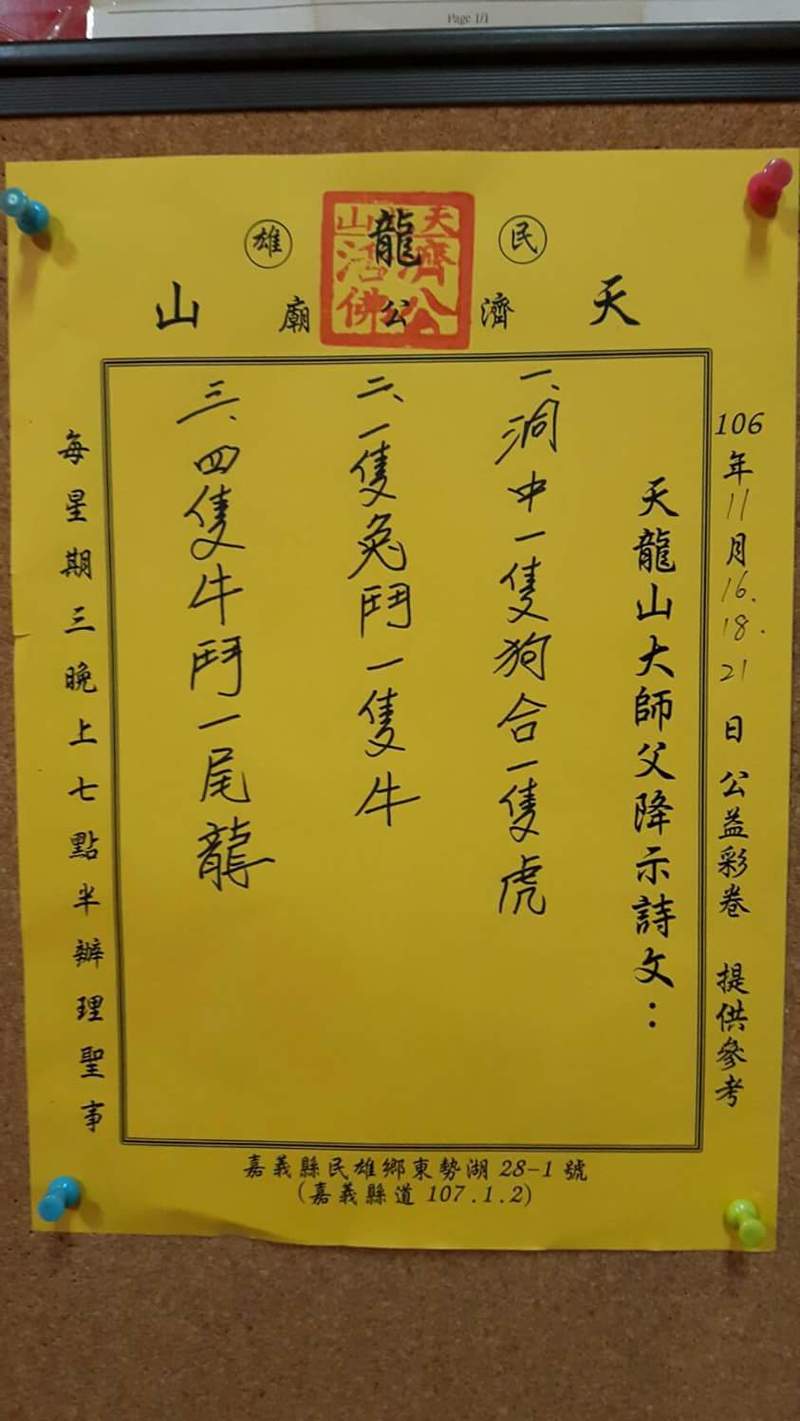 Page 1/1
民雄
天龍山
濟公廟
天龍山
濟公
活佛
106年11月16.18.21日公益彩卷 提供參考
天龍山大師父降示詩文：
一、洞中一隻狗合一隻虎
二、一隻兔鬥一隻牛
三、四隻牛鬥一尾龍
每星期三晚上七點半辦理聖事
嘉義縣民雄鄉東勢湖28-1號
(嘉義縣道107.1.2)